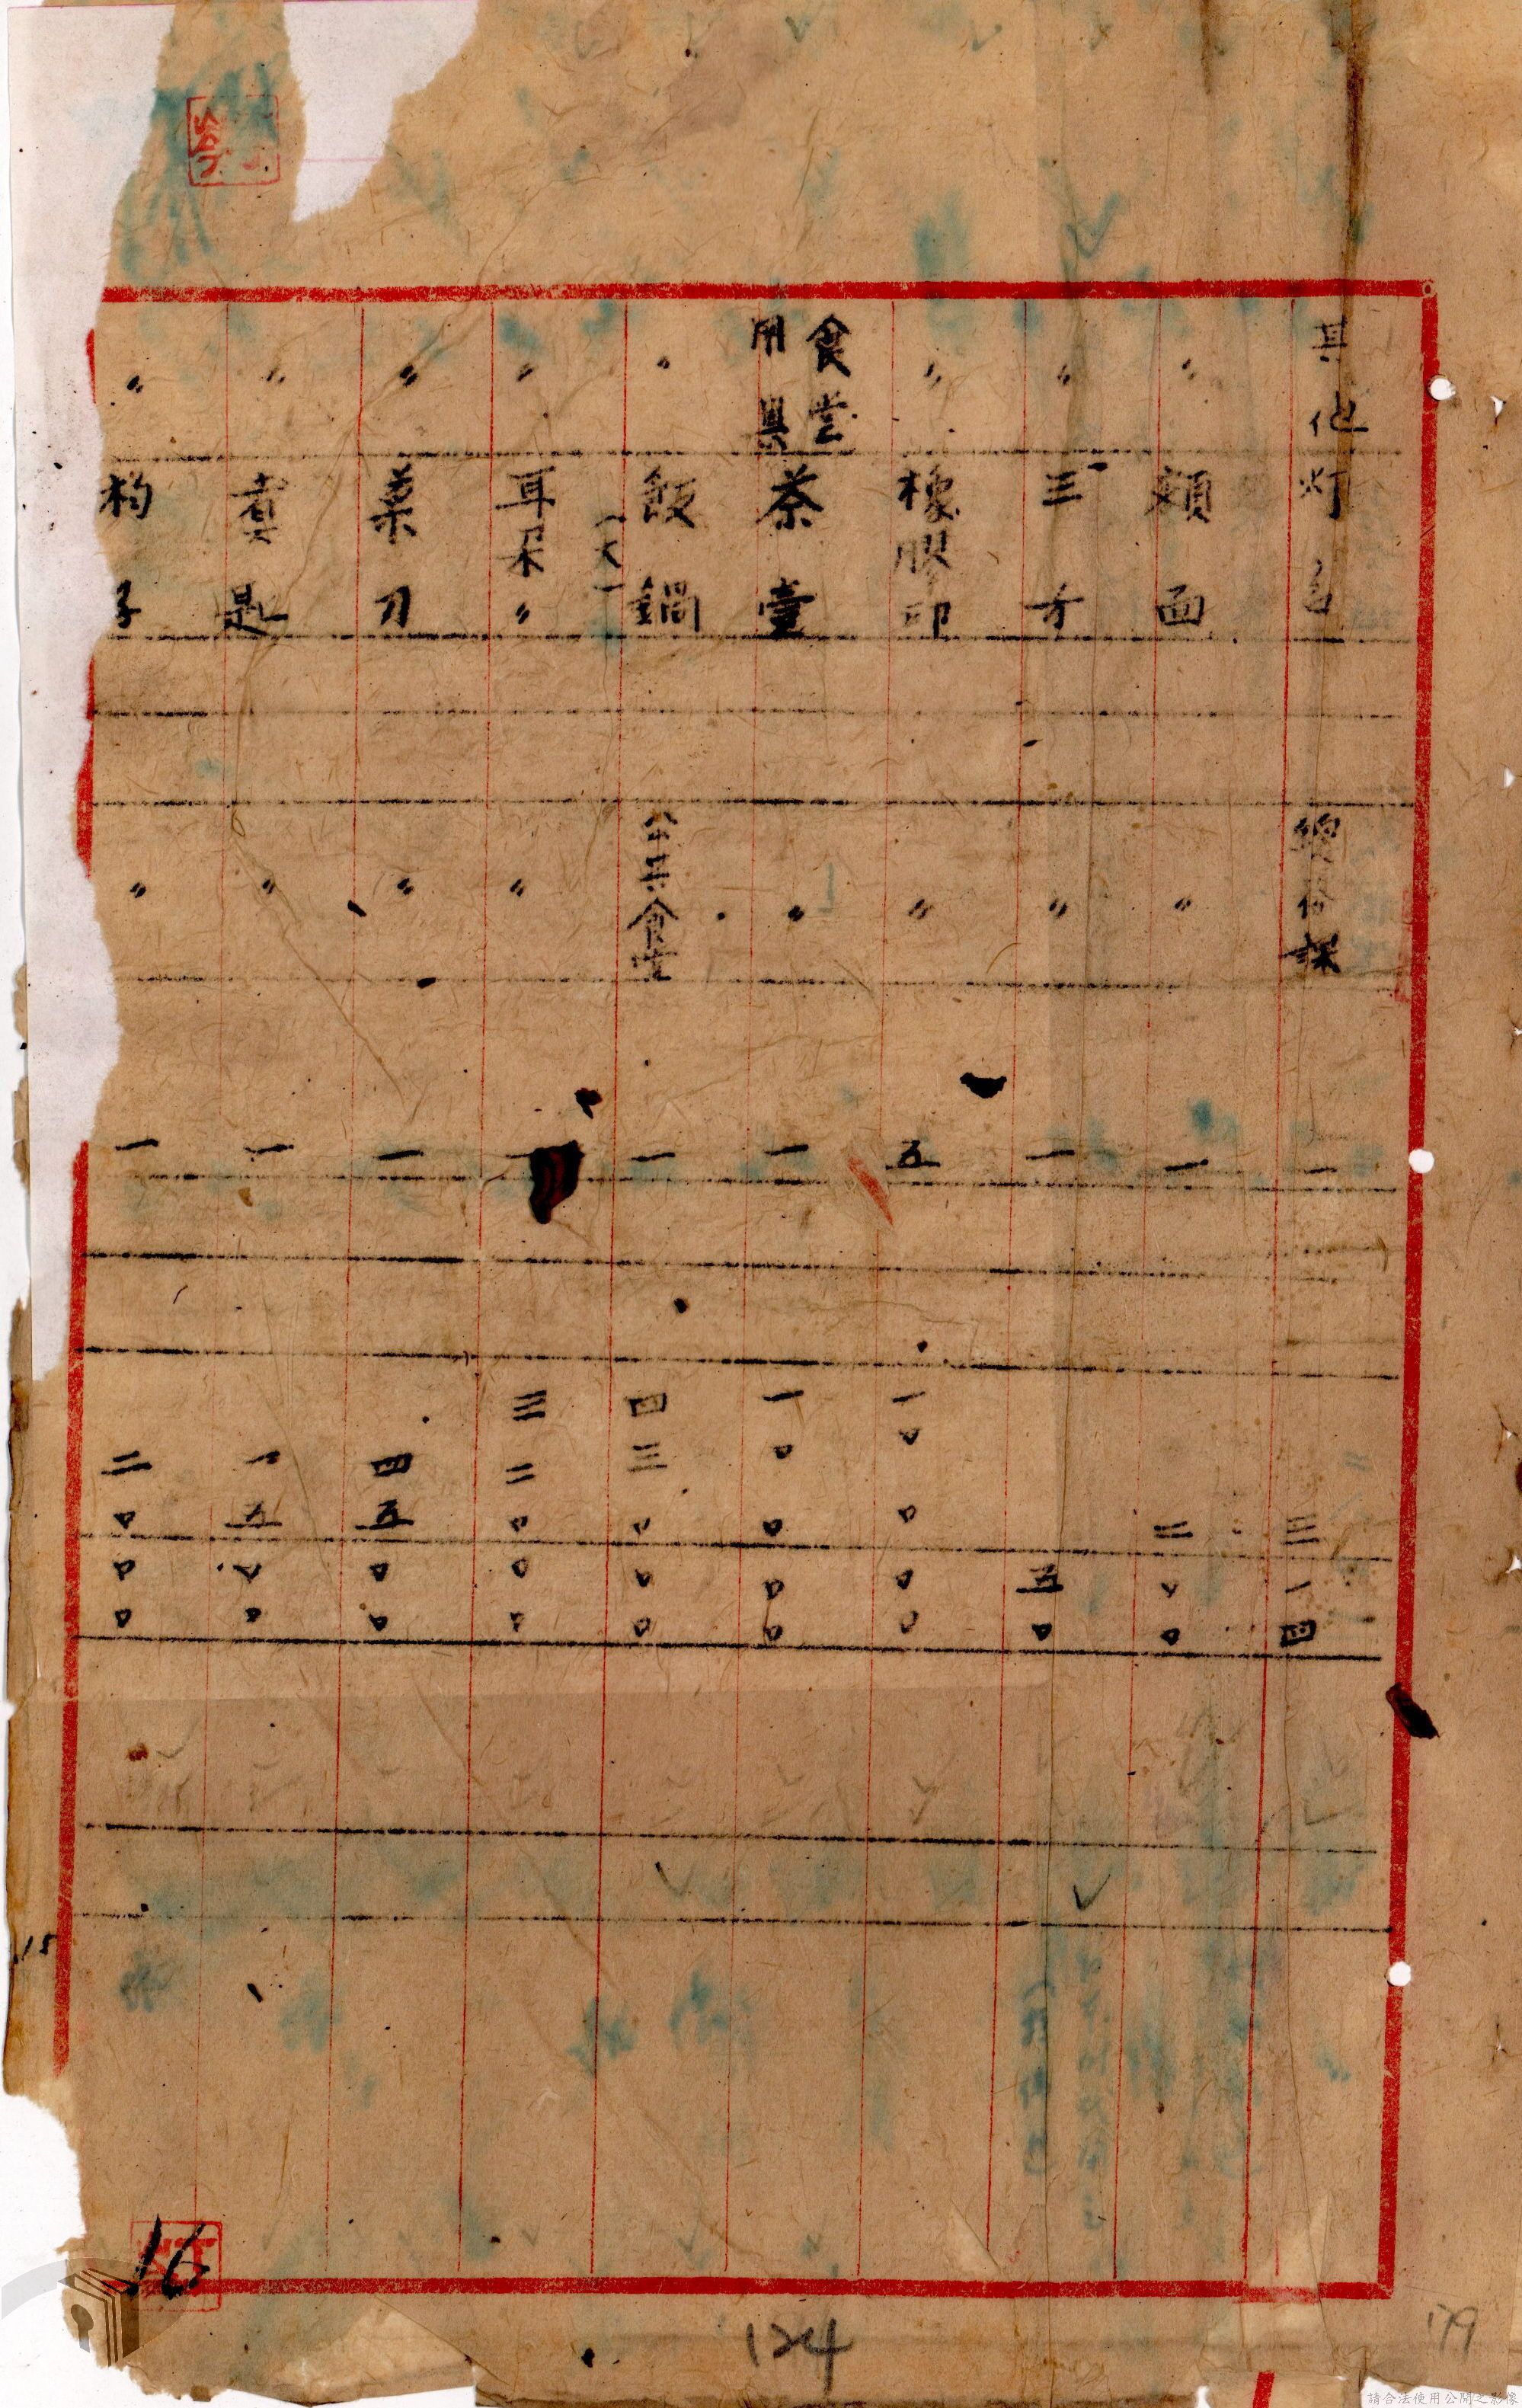 其他 灯台 總務課 一 三一四
〃 額面 〃 一 二〇〇
〃 三方 〃 一 五〇
〃 橡膠印 〃 五 一〇〇〇〇
食堂用具 茶壷 〃 一 一〇〇〇〇
〃 飯鍋(大) 公共食堂 一 四三〇〇〇
〃 耳朵〃 〃 一 三二〇〇〇
〃 菜刀 〃 一 四五〇〇
〃 〃 一 一五〇〇
〃 杓子 〃 一 二〇〇〇
15
16
124
179
請合法使用公開之影像